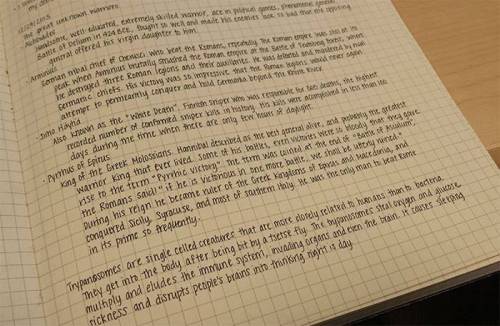 The great unknown warriors
Alcibiades
Handsome, well-educated, extremely skilled warrior, ace in political games, phenomenal general.
Battle of Delium in 424 BCE, fought so well and made his enemies look so bad that the opposing
general offered his virgin daughter to him.
Arminius
German tribal chief of Cherusci who beat the Romans, repeatedly. The Roman Empire was still at its
peak when Arminius brutally smashed the Roman Empire at the Battle of Teutoburg Forest, when
he destroyed three Roman legions and their auxiliaries. He was defeated and murdered by rival
Germanic chiefs. His victory was so impressive that the Roman legions would never again
attempt to permanently conquer and hold Germania beyond the Rhine River
- Simo Häyhä
Also known as the "White Death". Finnish sniper who was responsible for 505 deaths, the highest
recorded number of confirmed sniper kills in history. His kills were accomplished in less than 100
days during the time when there are only few hours of daylight.
- Pyrrhus of Epirus
King of the Greek Molossians. Hannibal described as the best general alive, and probably the greatest
Warrior King that ever lived. Some of his battles, even victories were so bloody that they gave
rise to the term "Pyrrhic victory". The term was coined at the end of "Battle of Asculum",
the Romans said: "if he is victorious in one more battle, we shall be utterly ruined."
During his reign he became ruler of the Greek kingdoms of Epirus and Macedonia, and
conquered Sicily, Syracuse, and most of southern Italy. He was the only man to beat Rome
in its prime so frequently.
Trypanosomes are single celled creatures that are more closely related to humans than to bacteria.
They get into the body after being bit by a tsetse fly. The trypanosomes steal oxygen and glucose,
multiply and eludes the immune system, invading organs and even the brain. It causes sleeping
sickness and disrupts people's brains into thinking night is day.